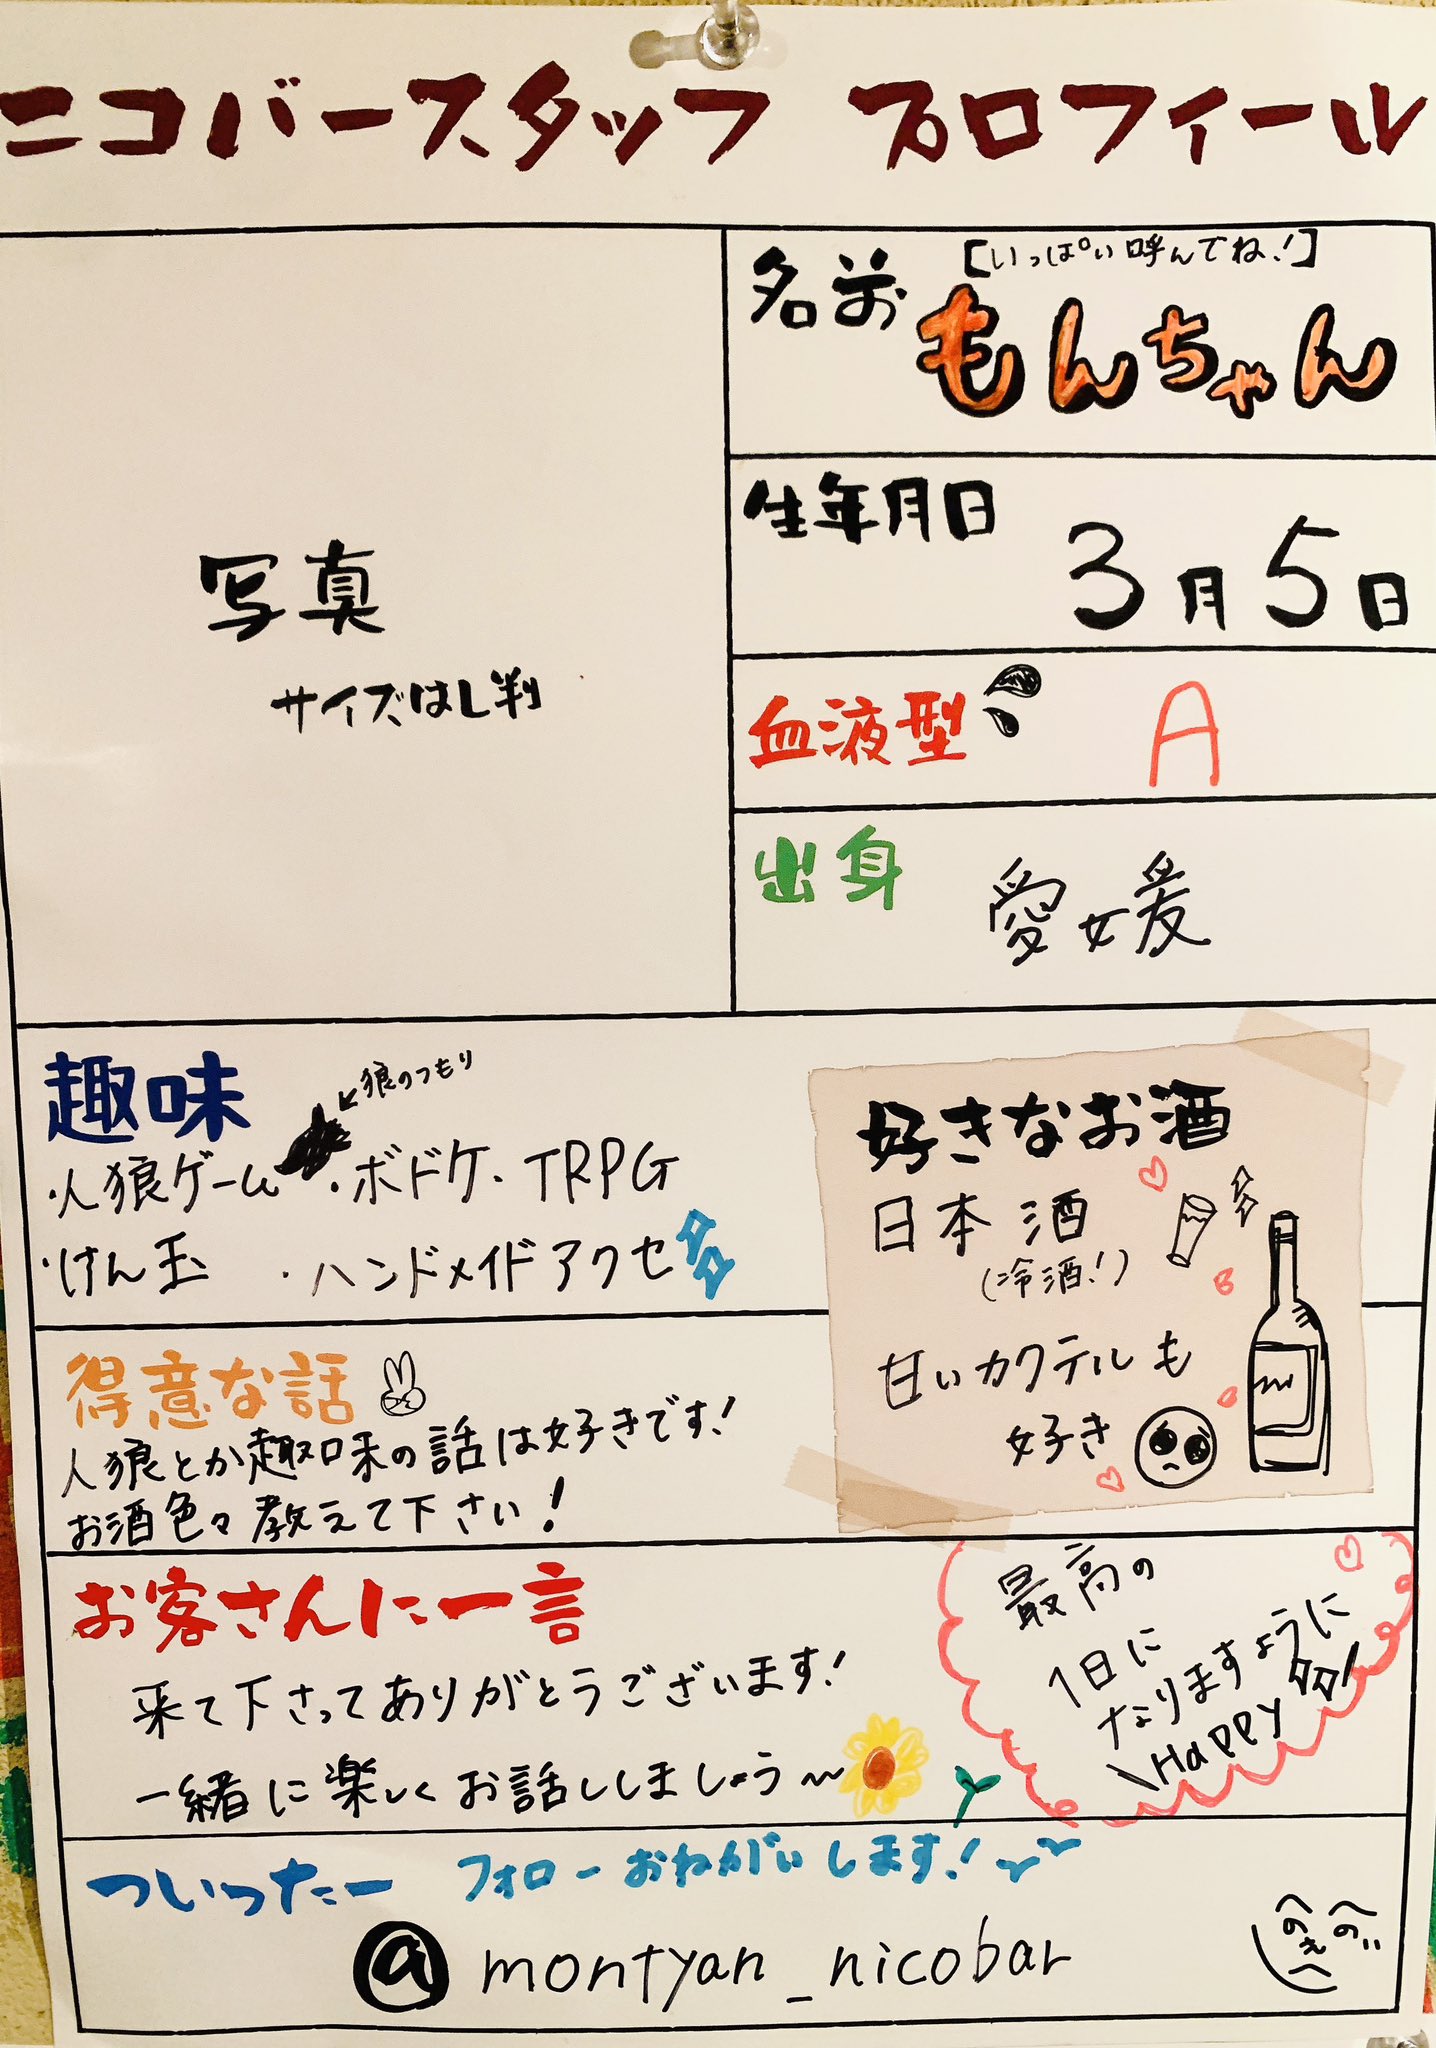 ニコバースタッフ プロフィール
写真
サイズはし判
名前
【いっぱい呼んでね!】
もんちゃん
生年月日
3月5日
血液型
A
出身
愛媛
趣味
←狼のつもり
・人狼ゲーム ・ボドゲ・TRPG
・けん玉 ・ハンドメイドアクセ
好きなお酒
日本酒
(冷酒!)
甘いカクテルも
好き
得意な話
人狼とか趣味の話は好きです!
お酒色々教えて下さい!
お客さんに一言
来て下さってありがとうございます!
一緒に楽しくお話ししましょう〜
最高の
1日に
なりますように
\Happy/
ついったー フォローおねがいします!
@montyan_nicobar